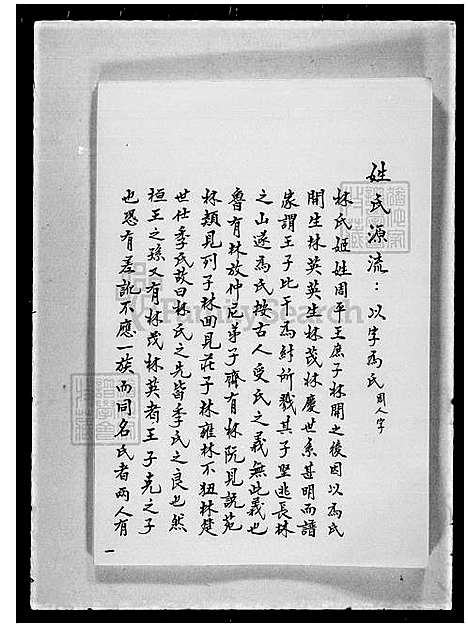 姓氏源流：以字為氏 周人字
林氏姬姓周平王庶子林開之後因以為氏
開生林英英生林茂林慶世系甚明而譜
家謂王子比干為紂所戮其子堅逃長林
之山遂為氏按古人受氏之義無此義也
魯有林放仲尼弟子齊有林阮見說苑
林類見列子林回見莊子林雍林不狃林楚
世仕季氏故曰林氏之先皆季氏之良也然
桓王之孫又有林茂林英者王子克之子
也恐有差訛不應一族而同名氏者兩人有
一
FamilySearch